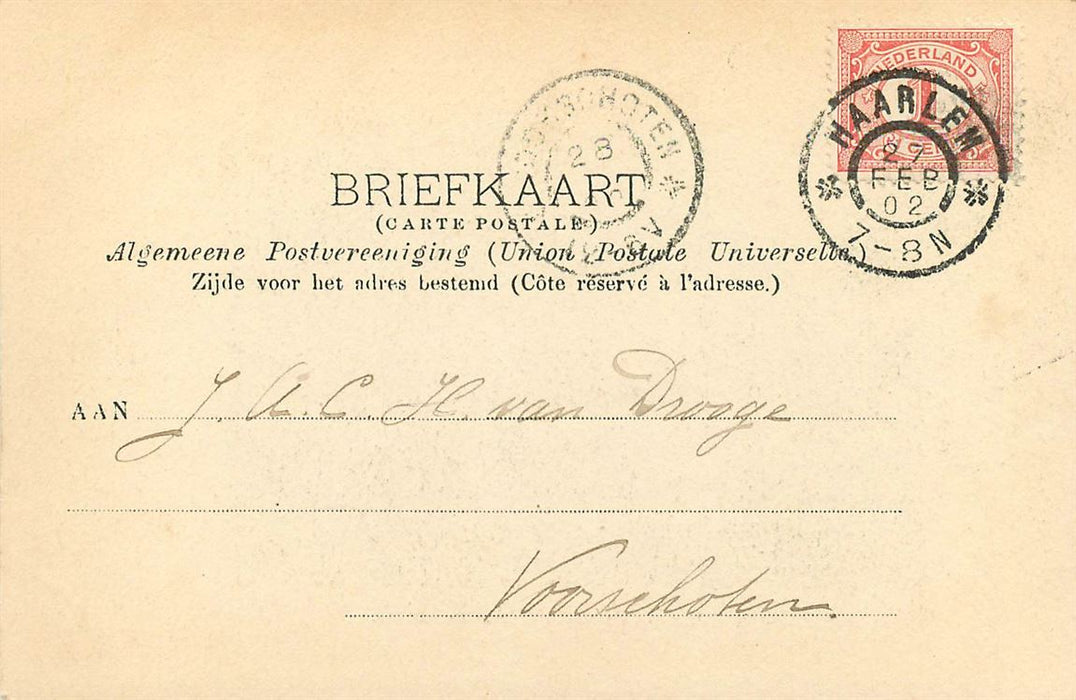 NEDERLAND
1
CENT
HAARLEM
27
FEB
02
7-8N
VOORSCHOTEN
28
BRIEFKAART
(CARTE POSTALE.)
Algemeene Postvereeniging (Union Postale Universelle)
Zijde voor het adres bestemd (Côte réservé à l'adresse.)
AAN J. A. C. H. van Drooge
Voorschoten.